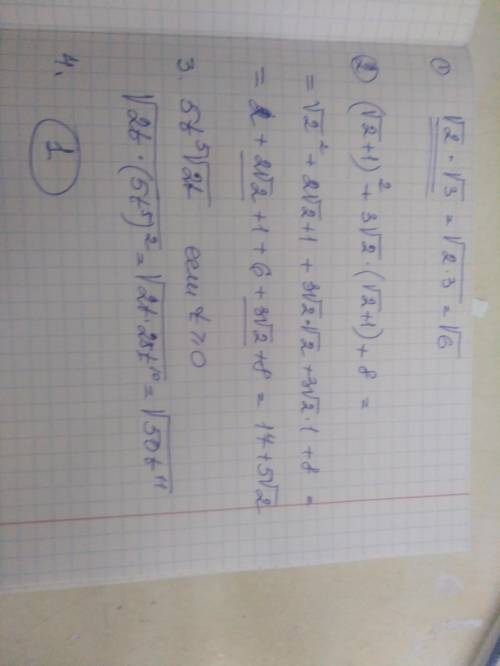 ① √2 · √3 = √2·3 = √6
② (√2+1)² + 3√2 · (√2+1) + 8 =
= √2² + 2√2+1 + 3√2·√2 + 3√2·1 + 8 =
= 2 + 2√2 + 1 + 6 + 3√2 + 8 = 17 + 5√2
3. 5t⁵√2t если t ≥ 0
√2t · (5t⁵)² = √2t · 25t¹⁰ = √50t¹¹
4. 1